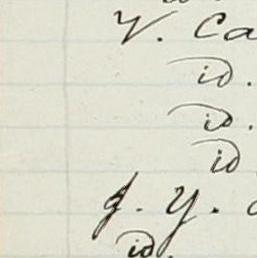 V. Ca
id.
id.
id
J. Y.
id.